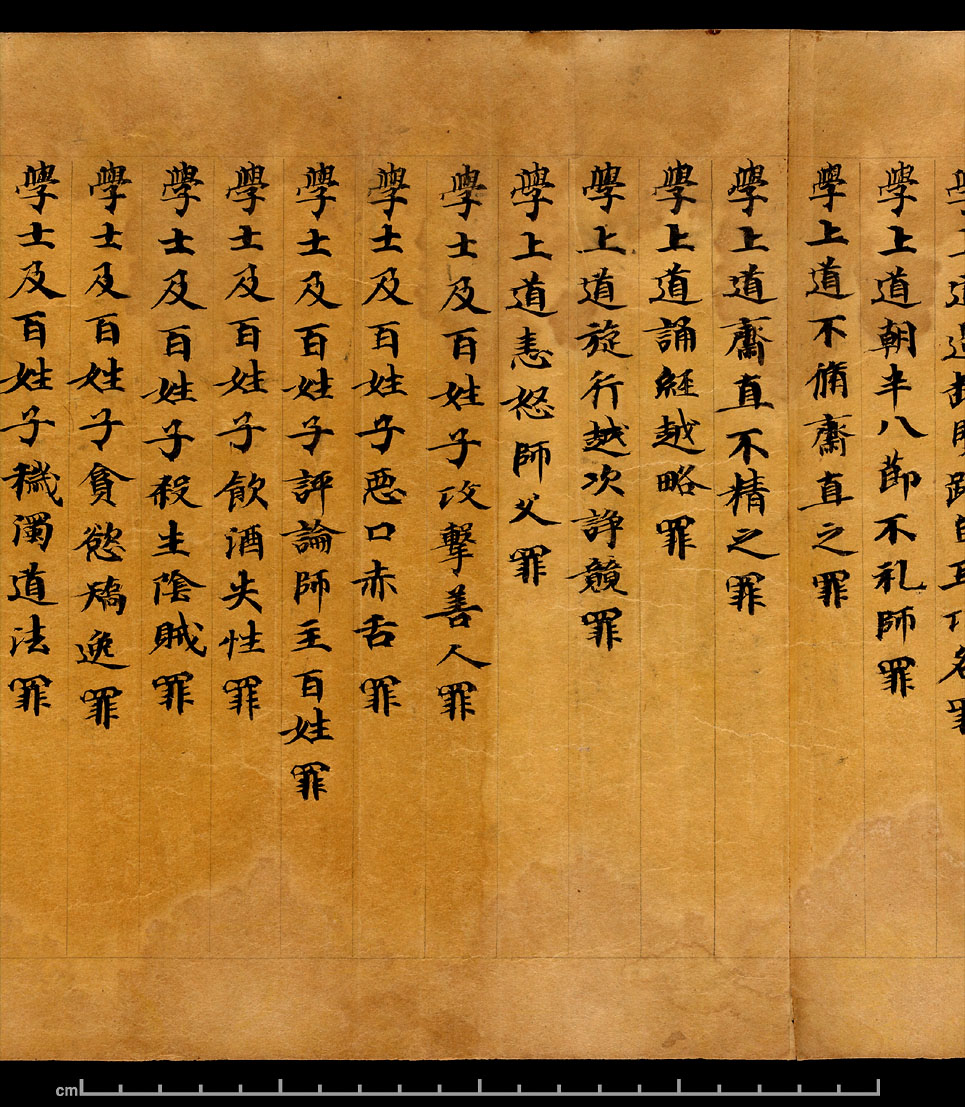 學上道路自功名罪
學上道朝半八節不礼師罪
學上道不脩齋直之罪
學上道齋直不精之罪
學上道誦經越略罪
學上道旋行越次諍競罪
學上道恚怒師父罪
學士及百姓子攻擊善人罪
學士及百姓子惡口赤舌罪
學士及百姓子評論師主百姓罪
學士及百姓子飲酒失性罪
學士及百姓子殺生陰賊罪
學士及百姓子貪慾矯逸罪
學士及百姓子穢濁道法罪
cm